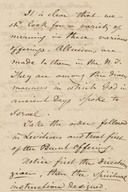 It is clear that we are
to look for a variety of
meaning in these various
Offerings. Allusions are
made to them in the N.T.
They are among the divers
manners in which God in
ancient days spoke to
Israel.
Take the order followed
in Leviticus and treat first
of the Burnt Offering.
Notice first the
then the Spiritual
instruction designed.